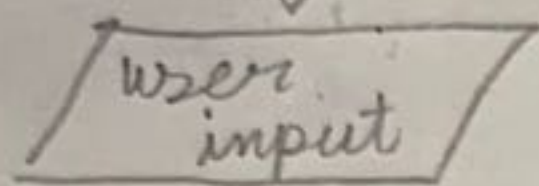 user
input